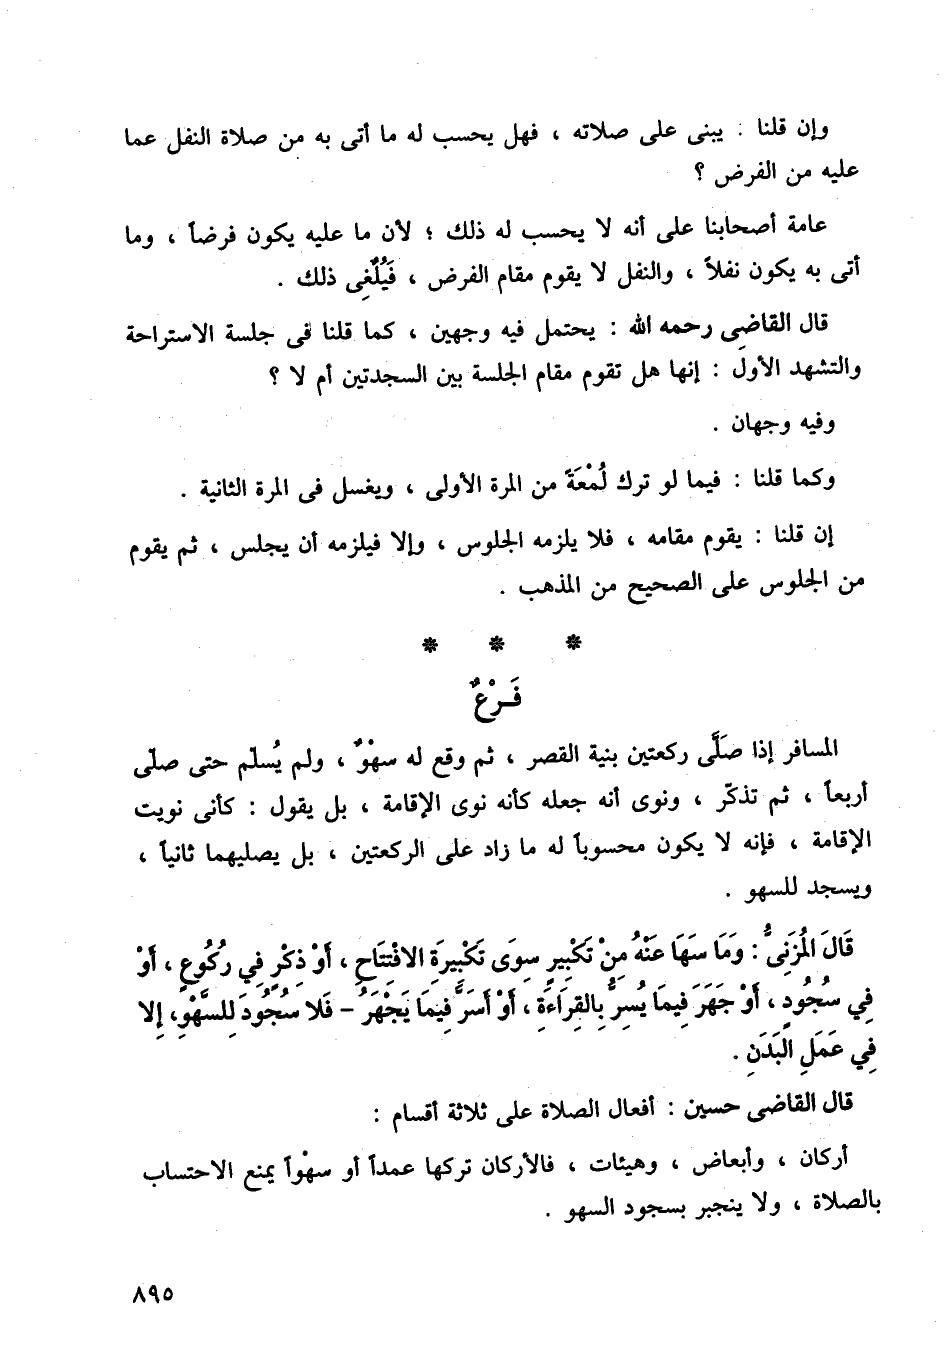 وإن قلنا : يبنى على صلاته ، فهل يحسب له ما أتى به من صلاة النفل عما
عليه من الفرض ؟
عامة أصحابنا على أنه لا يحسب له ذلك ؛ لأن ما عليه يكون فرضاً ، وما
أتى به يكون نفلاً ، والنفل لا يقوم مقام الفرض ، فَيُلْغِى ذلك .
قال القاضى رحمه الله : يحتمل فيه وجهين ، كما قلنا فى جلسة الاستراحة
والتشهد الأول : إنها هل تقوم مقام الجلسة بين السجدتين أم لا ؟
وفيه وجهان .
وكما قلنا : فيما لو ترك لُمْعَةً من المرة الأولى ، ويغسل فى المرة الثانية .
إن قلنا : يقوم مقامه ، فلا يلزمه الجلوس ، وإلا فيلزمه أن يجلس ، ثم يقوم
من الجلوس على الصحيح من المذهب .
* * *
فَـرْعٌ
المسافر إذا صَلَّى ركعتين بنية القصر ، ثم وقع له سهْوٌ ، ولم يُسلم حتى صلى
أربعاً ، ثم تذكّر ، ونوى أنه جعله كأنه نوى الإقامة ، بل يقول : كأنى نويت
الإقامة ، فإنه لا يكون محسوباً له ما زاد على الركعتين ، بل يصليهما ثانياً ،
ويسجد للسهو .
قَالَ المُزَنِىُّ : وَمَا سَهَا عَنْهُ مِنْ تَكْبِيرٍ سِوَى تَكْبِيرَةِ الافْتِتَاحِ ، أَوْ ذِكْرٍ فِي رُكُوعٍ ، أَوْ
فِي سُجُودٍ ، أَوْ جَهَرَ فِيمَا يُسِرُّ بِالقِرَاءَةِ ، أَوْ أَسَرَّ فِيمَا يَجْهَرُ – فَلا سُجُودَ لِلسَّهْوِ، إِلا
فِي عَمَلِ الْبَدَنِ .
قال القاضى حسين : أفعال الصلاة على ثلاثة أقسام :
أركان ، وأبعاض ، وهيئات ، فالأركان تركها عمداً أو سهْواً يمنع الاحتساب
بالصلاة ، ولا ينجبر بسجود السهو .
٨٩٥